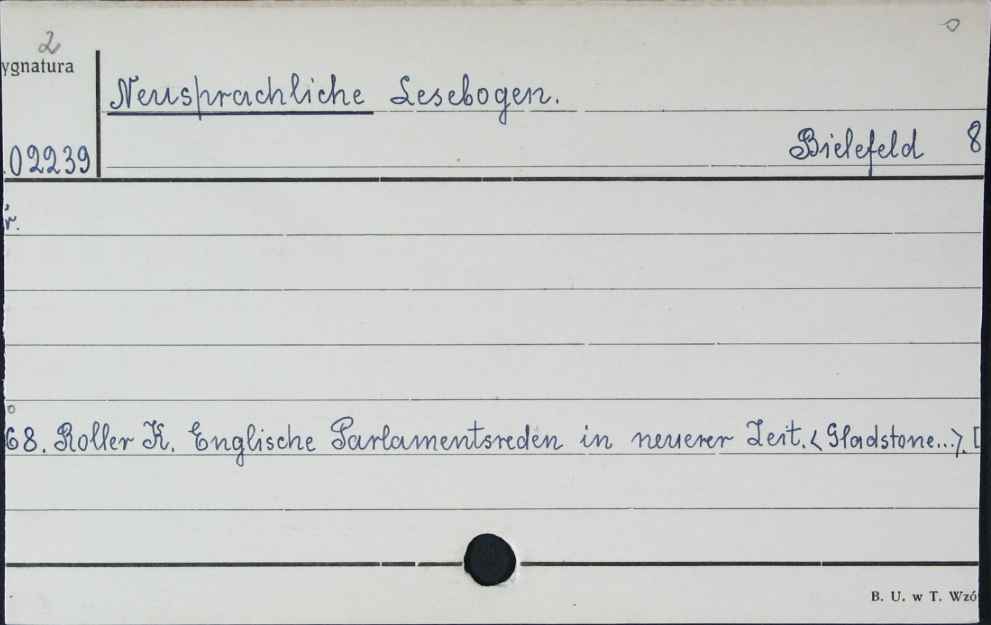 2
ygnatura
Neusprachliche Lesebogen.
Bielefeld 8
02239
r.
68. Roller K. Englische Parlamentsreden in neuerer Zeit. <Gladstone...>. [
B. U. w T. Wzó